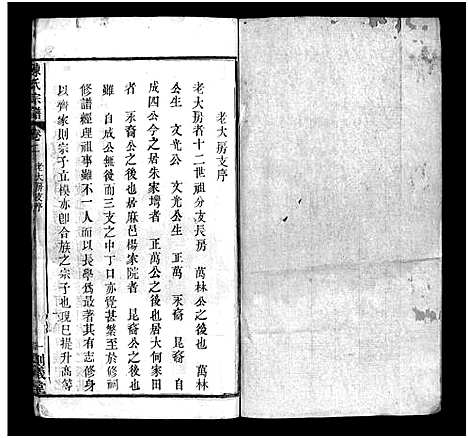 老大房支序
老大房者十二世祖分支長房　萬林公之後也　萬林
公生　文光公　文光公生　正萬　永裔　昆裔　自
成四公今之居朱家塆者　正萬公之後也居大何家田
者　永裔公之後也居麻邑楊家院者　昆裔公之後也
雖　自成公無後而三支之中丁口亦覺甚繁至於修祠
修譜經理祖事雖不一人而以長學爲最著其有志修身
以齊家則宗子立模亦卽合族之宗子也現已提升高等
氏宗譜
卷二
老大房支序
義堂